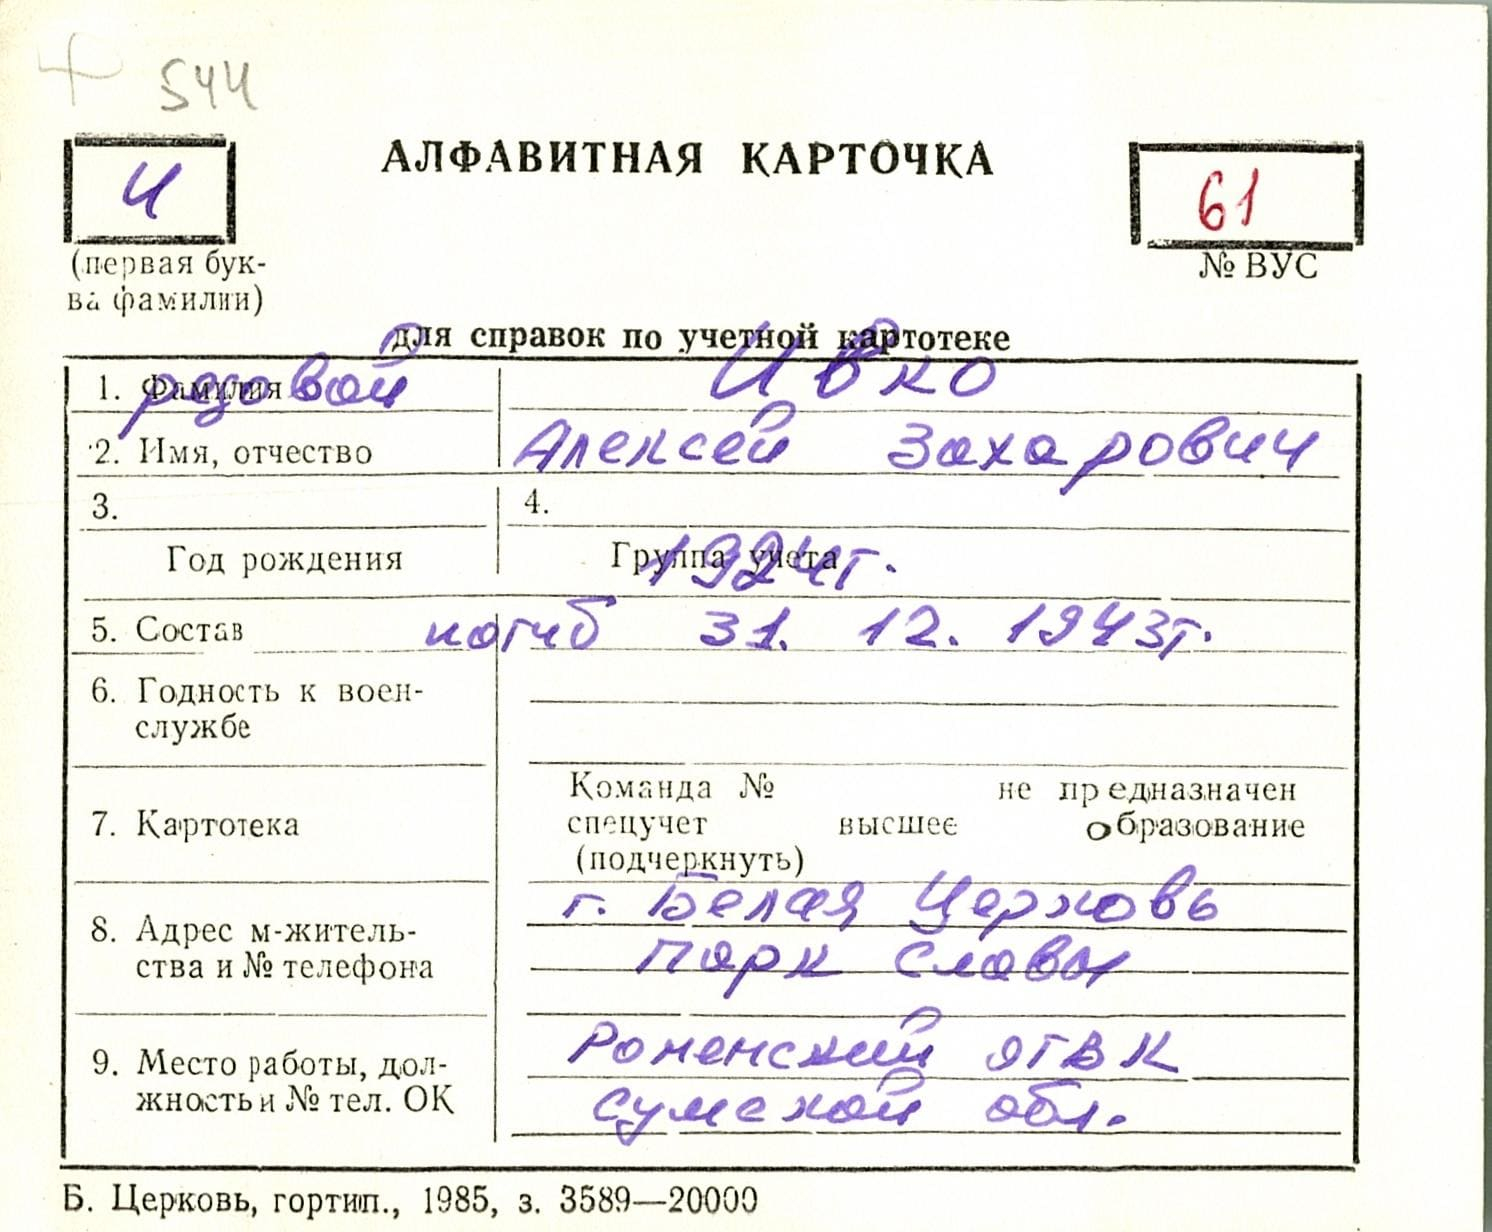 544
АЛФАВИТНАЯ КАРТОЧКА
И
61
(первая бук-
ва фамилии)
№ ВУС
для справок по учетной картотеке
1. Фамилия рядовой Ивко
2. Имя, отчество Алексей Захарович
3. 4.
Год рождения Группа учета 1924г.
5. Состав погиб 31. 12. 1943г.
6. Годность к воен-
службе
Команда № не предназначен
7. Картотека спецучет высшее образование
(подчеркнуть)
г. Белая Церковь
8. Адрес м-житель-
ства и № телефона
Парк Славы
9. Место работы, дол-
жность и № тел. ОК
Роменский ОГВК
Сумской обл.
Б. Церковь, гортип., 1985, з. 3589—20000